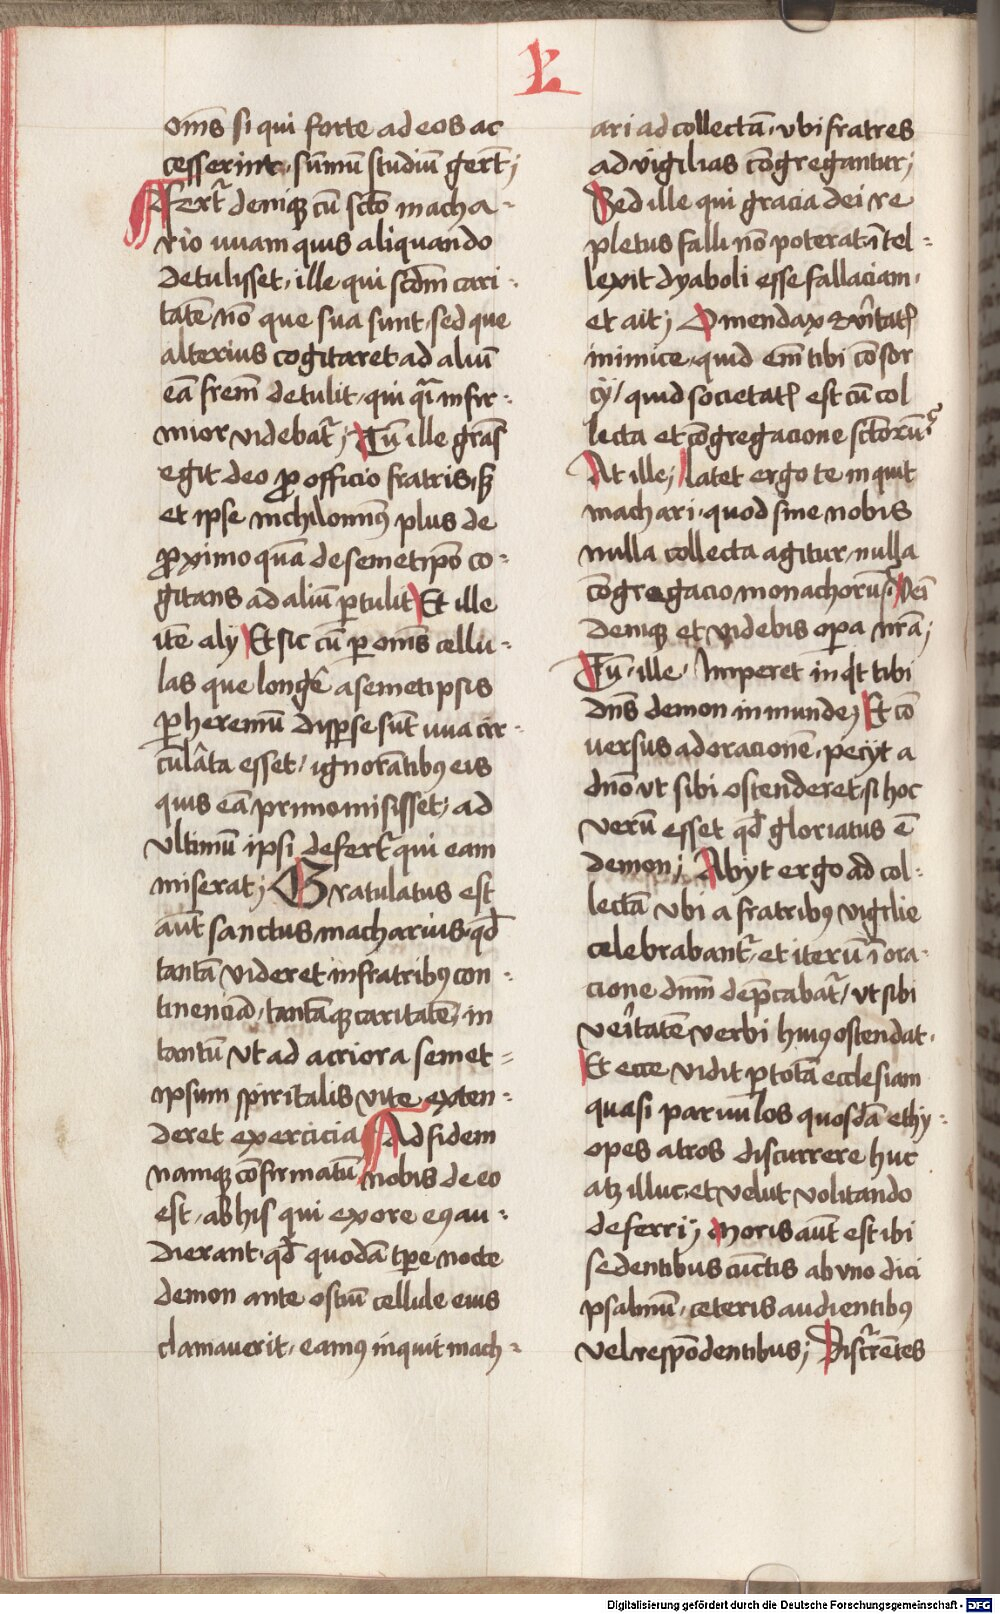 L
om̄s si qui forte ad eos ac
cesserint, sūmū studiū gerūt;
Fert᷑ deniqꝫ cū scto macha-
rio uuam quis aliquando
detulisset, ille qui scdm̄ cari-
tatē nō que sua sunt, sed que
alterius cogitaret ad aliū
eā frem̄ detulit, qui qī infir-
mior videbat᷑; Tū ille gras̄
egit deo ꝓ officio fratris, sꝫ
et ipse nichilomin᷒ plus de
ꝓximo quā de semetip̄o co-
gitans ad aliū ꝑtulit Et ille
itē alij Et sic cū ꝑ om̄s cellu-
las que longe a semetipsis
ꝑ heremū disꝑse sūt uua cir-
cūlata esset, ignorātibꝫ eis
quis eā primo misisset, ad
vltimū ipsi defert᷑ qui eam
miserat; Gratulatus est
aūt sanctus macharius, qd̄
tantā videret in fratribꝫ con-
tinenciā, tantāqꝫ caritatē, in
tantū vt ad acriora semet-
ipsum spiritalis vite exten-
deret exercicia Ad fidem
namqꝫ cōfirmatū nobis de eo
est, ab his qui ex ore eiꝫ au-
dierant, qd̄ quodā tꝑe nocte
demon ante ostiū cellule eius
clamauerit, eamꝫ inquit mach-
ari ad collectā, vbi fratres
ad vigilias cōgregantur;
Sed ille qui gracia dei re
pletus falli nō poterat ītel-
lexit dyaboli esse fallaciam,
et ait; O mendax ⁊ vītatꝭ
inimice, quid em̄ tibi cōsor
cij / quid societatꝭ est cū col
lecta et cōgregacione sctorū?
At ille; latet ergo te inquit
machari, quod sine nobis
nulla collecta agitur, nulla
cōgregacio monachorū? Veī
deniqꝫ et videbis oꝑa nrā;
Tū ille, Imperet inqͥt tibi
dn̄s demon inmunde; Et cō
uersus ad oracionē, pecijt a
dn̄o vt sibi ostenderet, si hoc
verū esset qd̄ gloriatus ē
demon; Abijt ergo ad col-
lectā vbi a fratribꝫ vigilie
celebrabant᷑, et iterū ī ora-
cione dn̄m dep̄cabat᷑, vt sibi
veritatē verbi huiꝫ ostendat.
Et ecce vidit ꝑ totā ecclesiam
quasi paruulos quosdā ethy-
opes atros discurrere huc
atꝫ illuc, et velut volitando
deferri; Moris aūt est ibi
sedentibus cūctis ab vno dici
psalmū, ceteris audientibꝫ
vel respōdentibus; Discrētes
Digitalisierung gefördert durch die Deutsche Forschungsgemeinschaft - DFG